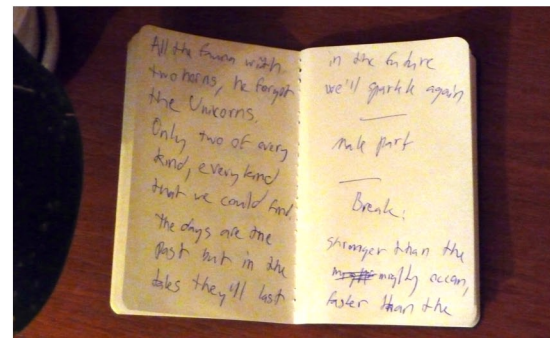 All the fauna with
two horns, he forgot
the Unicorns.
Only two of every
kind, every kind
that we could find.
The days are the
past but in the
tales they'll last
in the future
we'll sparkle again
male part
Break:
stronger than the
mighty ocean,
faster than the